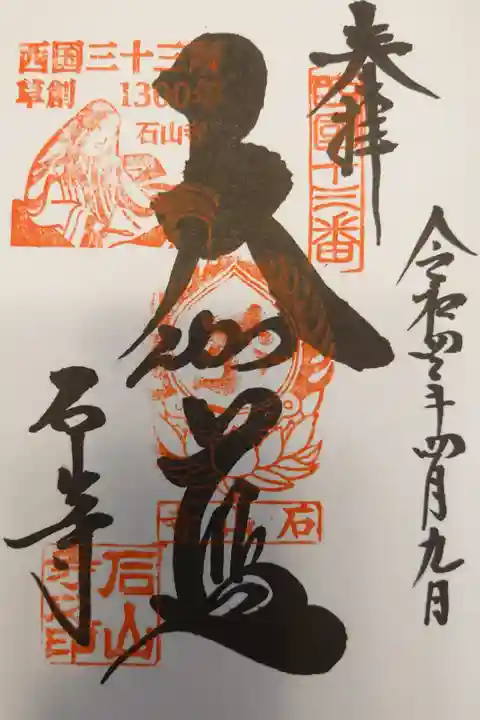 奉拝
西国十三番
令和四年四月九日
西国三十三所
草創 1300年
石山寺
大伽藍
石山寺
石山寺
石山